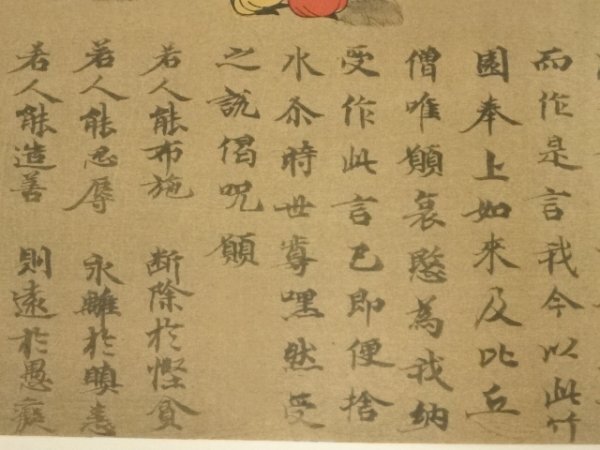 而作是言我今以此竹
園奉上如來及比丘
僧唯願哀愍為我納
受作此言已即便捨
水尒時世尊嘿然受
之說偈呪願
若人能布施　断除於慳貪
若人能忍辱　永離於瞋恚
若人能造善　則遠於愚癡